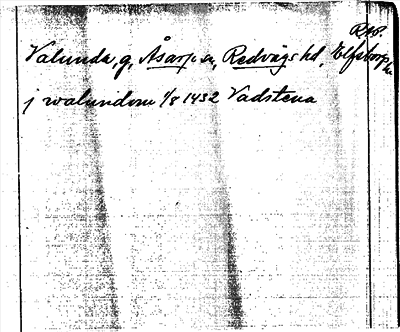 RAp.
Valunda, g, Åsarps sn, Redvägs hd, Elfsborgs län
j walundom 1/8 1432 Vadstena